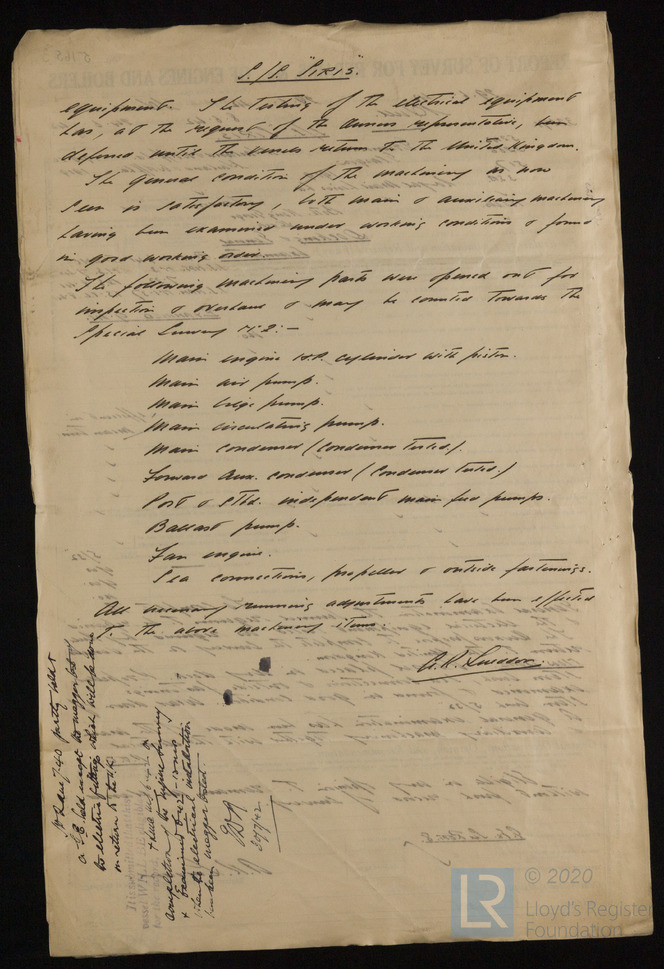 S/S. "SIRIS".
equipment. The testing of the electrical equipment
has, at the request of the Owners representative, been
deferred until the vessels return to the United Kingdom.
The general condition of the machinery as now
seen is satisfactory, both main & auxiliary machinery
having been examined under working conditions & found
in good working order.
The following machinery parts were opened out for
inspection & overhaul & may be counted towards the
Special Survey No 2:-
Main engine H.P. cylinder with piston.
Main air pump.
Main bilge pump.
Main circulating pump.
Main condenser (Condenser tested).
Forward Aux. condenser (Condenser tested.)
Port & Stbd. independent main feed pumps.
Ballast pump.
Fan engine.
Sea connections, propeller & outside fastenings.
All necessary running adjustments have been effected
to the above machinery items.
7.40 partly held
held except to megger test
to electric fittings which will be done
on return to the U.K.
completion of the Engine Survey
examined
when the electrical installation
has been megger tested
20/7/42
LR
© 2020
Lloyd's Register
Foundation